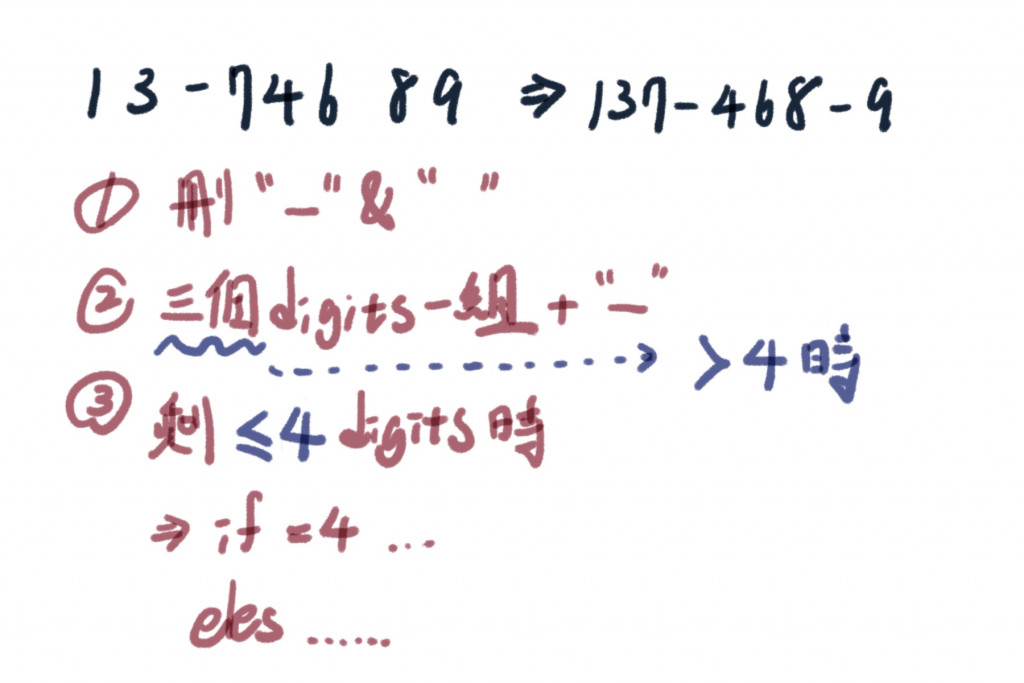 13-746 89 ⇒ 137-468-9
① 刪 "-" & " "
② 三個 digits 一組 + "-"
> 4 時
③ 剩 ≤4 digits 時
⇒ if =4 ...
eles ......